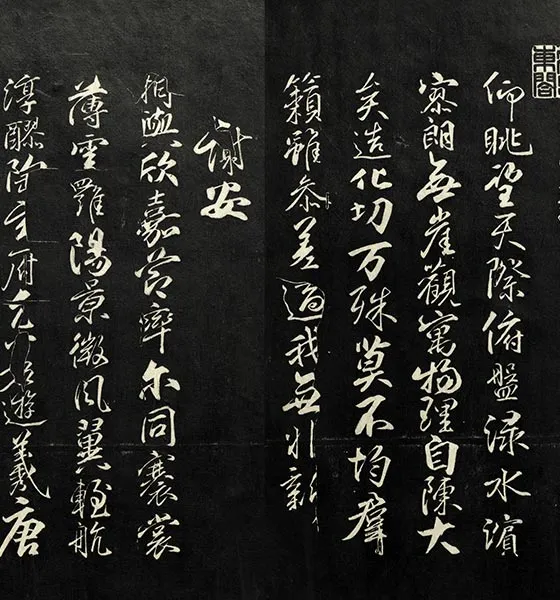 東閣
仰眺望天際俯盤淥水濱
寥朗無崖觀寓物理自陳大
矣造化功万殊莫不均羣
籟雖參差適我無非新
謝安
相與欣嘉節率尓同褰裳
薄雲羅陽景微風翼輕航
淳醪陶玄府兀若遊羲唐